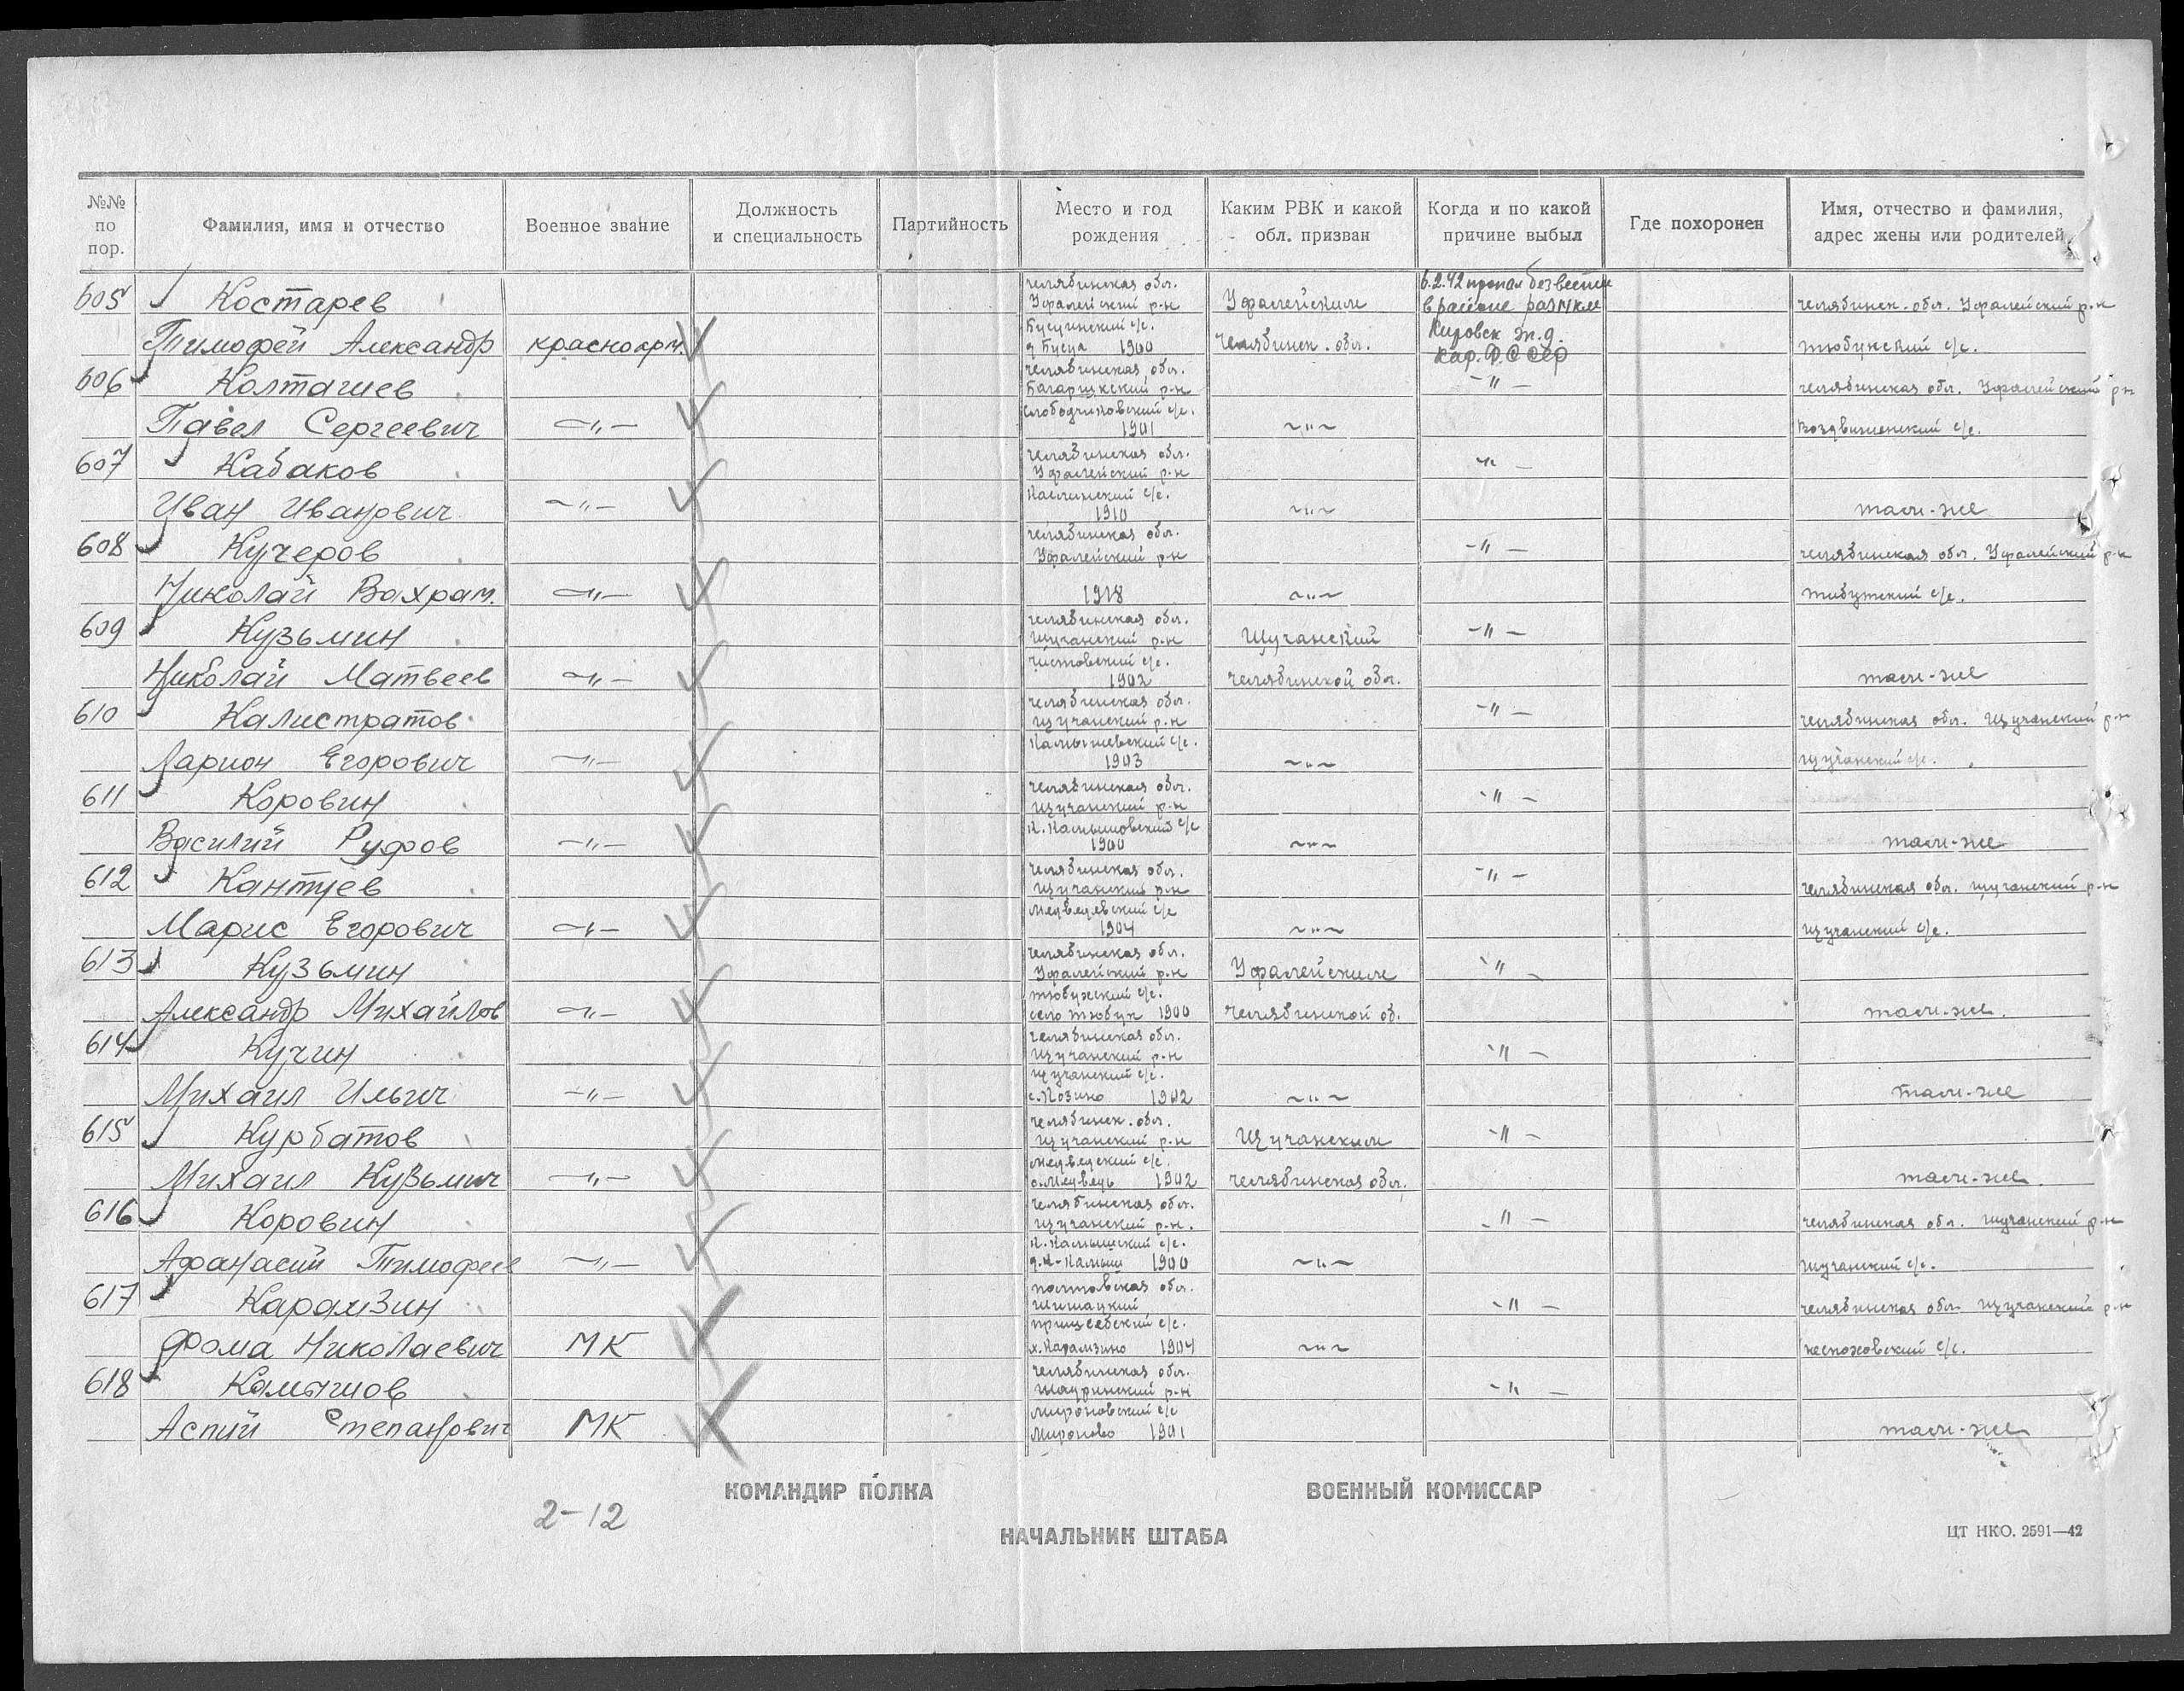 №№ по пор.
Фамилия, имя и отчество
Военное звание
Должность и специальность
Партийность
Место и год рождения
Каким РВК и какой обл. призван
Когда и по какой причине выбыл
Где похоронен
Имя, отчество и фамилия, адрес жены или родителей
605 Костарев
Тимофей Александр красноарм.
Челябинская обл.
Уфалейский р-н
1900
Уфалейским
Челябинск. обл.
6.2.42 пропал безвести
в районе
Кировск ж.д.
Кар. Ф.ССР
Челябинск. обл. Уфалейский р-н
с/с.
606 Колташев
Павел Сергеевич -"-
Челябинская обл.
Багарякский р-н
с/с.
1901
-"-
-"-
Челябинская обл. Уфалейский р-н
Воздвиженский с/с.
607 Кабаков
Иван Иванович -"-
Челябинская обл.
Уфалейский р-н
Каслинский с/с.
1910
-"-
-"-
там-же
608 Кучеров
Николай Вахрам. -"-
Челябинская обл.
Уфалейский р-н
1918
-"-
-"-
Челябинская обл. Уфалейский р-н
с/с.
609 Кузьмин
Николай Матвеев -"-
Челябинская обл.
Щучанский р-н
Чистовский с/с.
1902
Щучанский
Челябинской обл.
-"-
там-же
610 Калистратов
Ларион Егорович -"-
Челябинская обл.
Щучанский р-н
Камышевский с/с.
1903
-"-
-"-
Челябинская обл. Щучанский р-н
Щучанский с/с.
611 Коровин
Василий Руфов -"-
Челябинская обл.
Щучанский р-н
с/с
1900
-"-
-"-
там-же
612 Кантуев
Марис Егорович -"-
Челябинская обл.
Щучанский р-н
Медведевский с/с
1904
-"-
-"-
Челябинская обл. Щучанский р-н
Щучанский с/с.
613 Кузьмин
Александр Михайлов -"-
Челябинская обл.
Уфалейский р-н
с/с.
село Тюбук 1900
Уфалейским
Челябинской об.
-"-
там-же.
614 Кучин
Михаил Ильич -"-
Челябинская обл.
Щучанский р-н
Щучанский с/с.
с. Козино 1902
-"-
-"-
там-же
615 Курбатов
Михаил Кузьмич -"-
Челябинск. обл.
Щучанский р-н
Медведский с/с.
с. Медведь 1902
Щучанским
Челябинская обл.
-"-
там-же.
616 Коровин
Афанасий Тимофеев -"-
Челябинская обл.
Щучанский р-н.
с/с.
1900
-"-
-"-
Челябинская обл. Щучанский р-н
Щучанский с/с.
617 Карамзин
Фома Николаевич МК
Полтовская обл.
Шишацкий
с/с.
х. Карамзино 1904
-"-
-"-
Челябинская обл. Щучанский р-н
с/с.
618 Камышов
Аспий Степанович МК
Челябинская обл.
р-н
Мироновский с/с
Мироново 1901
-"-
там-же
КОМАНДИР ПОЛКА
ВОЕННЫЙ КОМИССАР
2-12
НАЧАЛЬНИК ШТАБА
ЦТ НКО. 2591—42